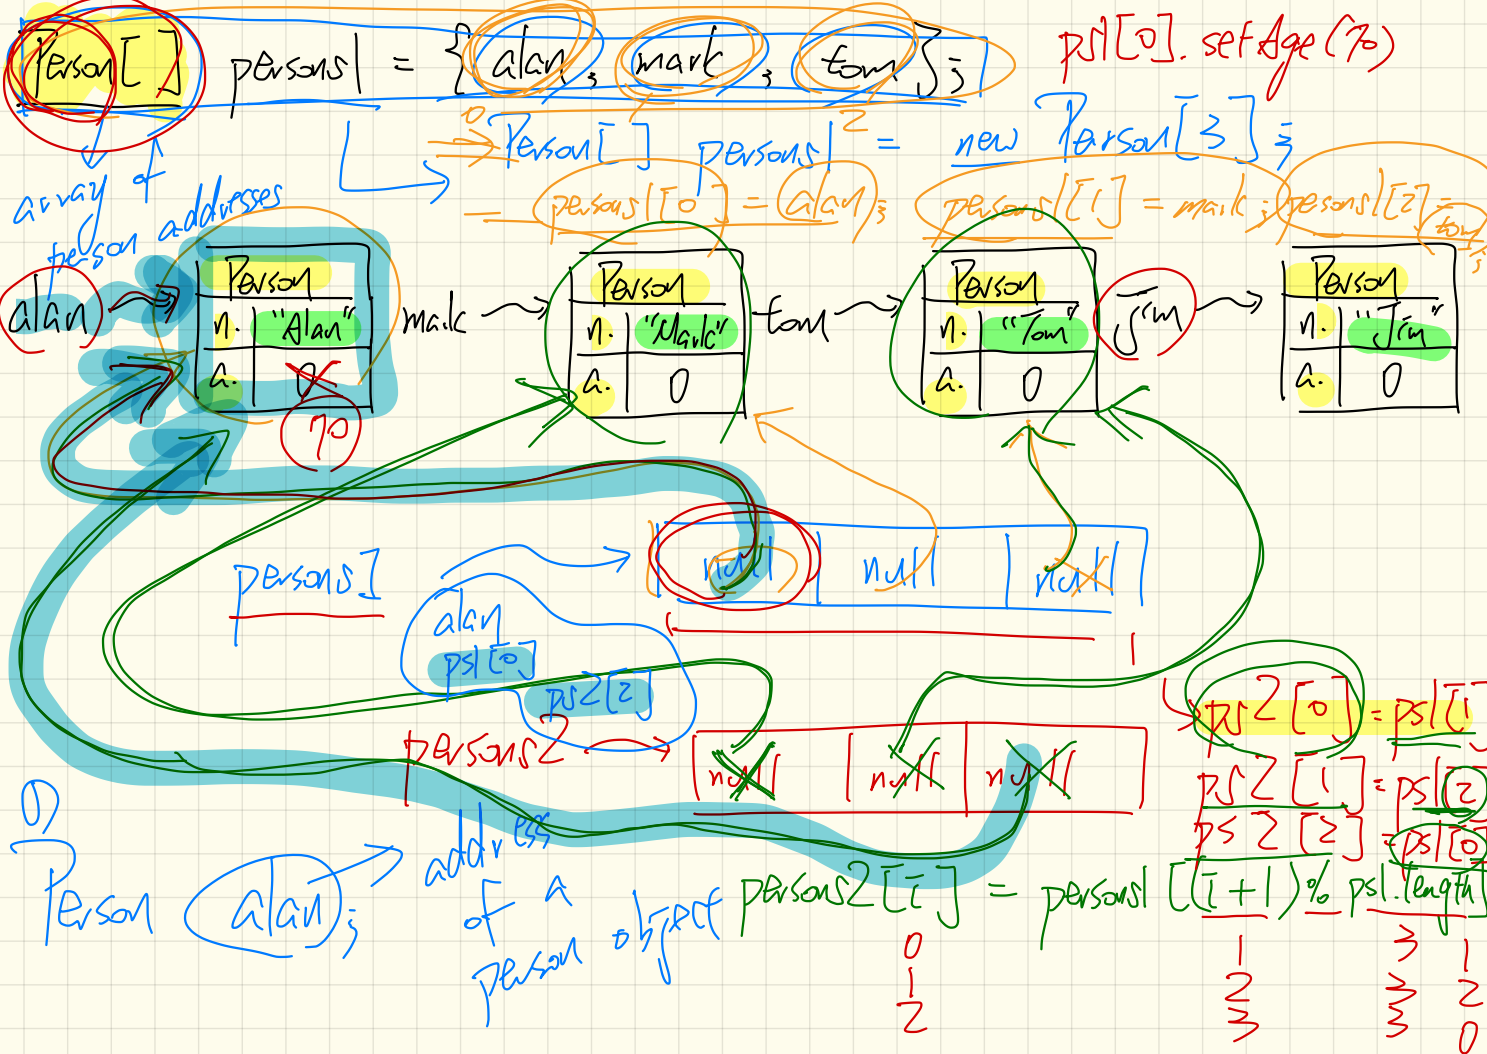 Person[] persons1 = {alan, mark, tom};
ps1[0].setAge(70)
0 1 2
⇒ Person[] persons1 = new Person[3];
= persons1[0] = alan; persons1[1] = mark; persons1[2] = tom;
array of
person addresses
alan → Person
n. "Alan"
a. 0
70
mark → Person
n. "Mark"
a. 0
tom → Person
n. "Tom"
a. 0
Jim → Person
n. "Jim"
a. 0
persons1 → null null null
alan
ps1[0]
ps2[2]
persons2 → null null null
ps2[0] = ps1[1
ps2[1] = ps1[2
ps2[2] = ps1[0]
① Person alan; → address
of a
person object
persons2[i] = persons1[(i+1)% ps1.length]
0 1 3 1
1 2 3 2
2 3 3 0